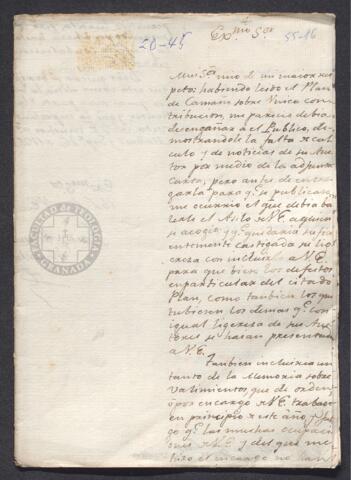 Ex.mo S.or
20-45
55-16
Mui S.or mio de mi maior res
peto: habiendo leido el Plan
de Caman sobre Unica con
tribucion, me parecio debia
desengañar à el Publico, de
mostrandole la falta de cal
culo y de noticias de su Au
tor por medio de la adjunta
Carta, pero antes de entre
garla para q.e se publicase
me ocurrio el que debia ba
lerle el Asilo de V.E. a quien
se acogio: y q.e quedaria sufici
entemente castigada su lige
reza con incluirla à V.E.
para que biese los defectos
en particular del citado
Plan, como tambien los que
tubiesen los demas q.e con
igual ligereza de sus Au
tores se hasan presentado
à V.E.
Tambien incluiria un
tanto de la Memoria sobre
Valimientos, que de orden
ò por encargo de V.E. trabajè
en principio de este año, y
q.e las muchas ocupacio
nes de V.E. y del que me
hizo el encargo no
FACULTAD de TEOLOGIA
GRANADA